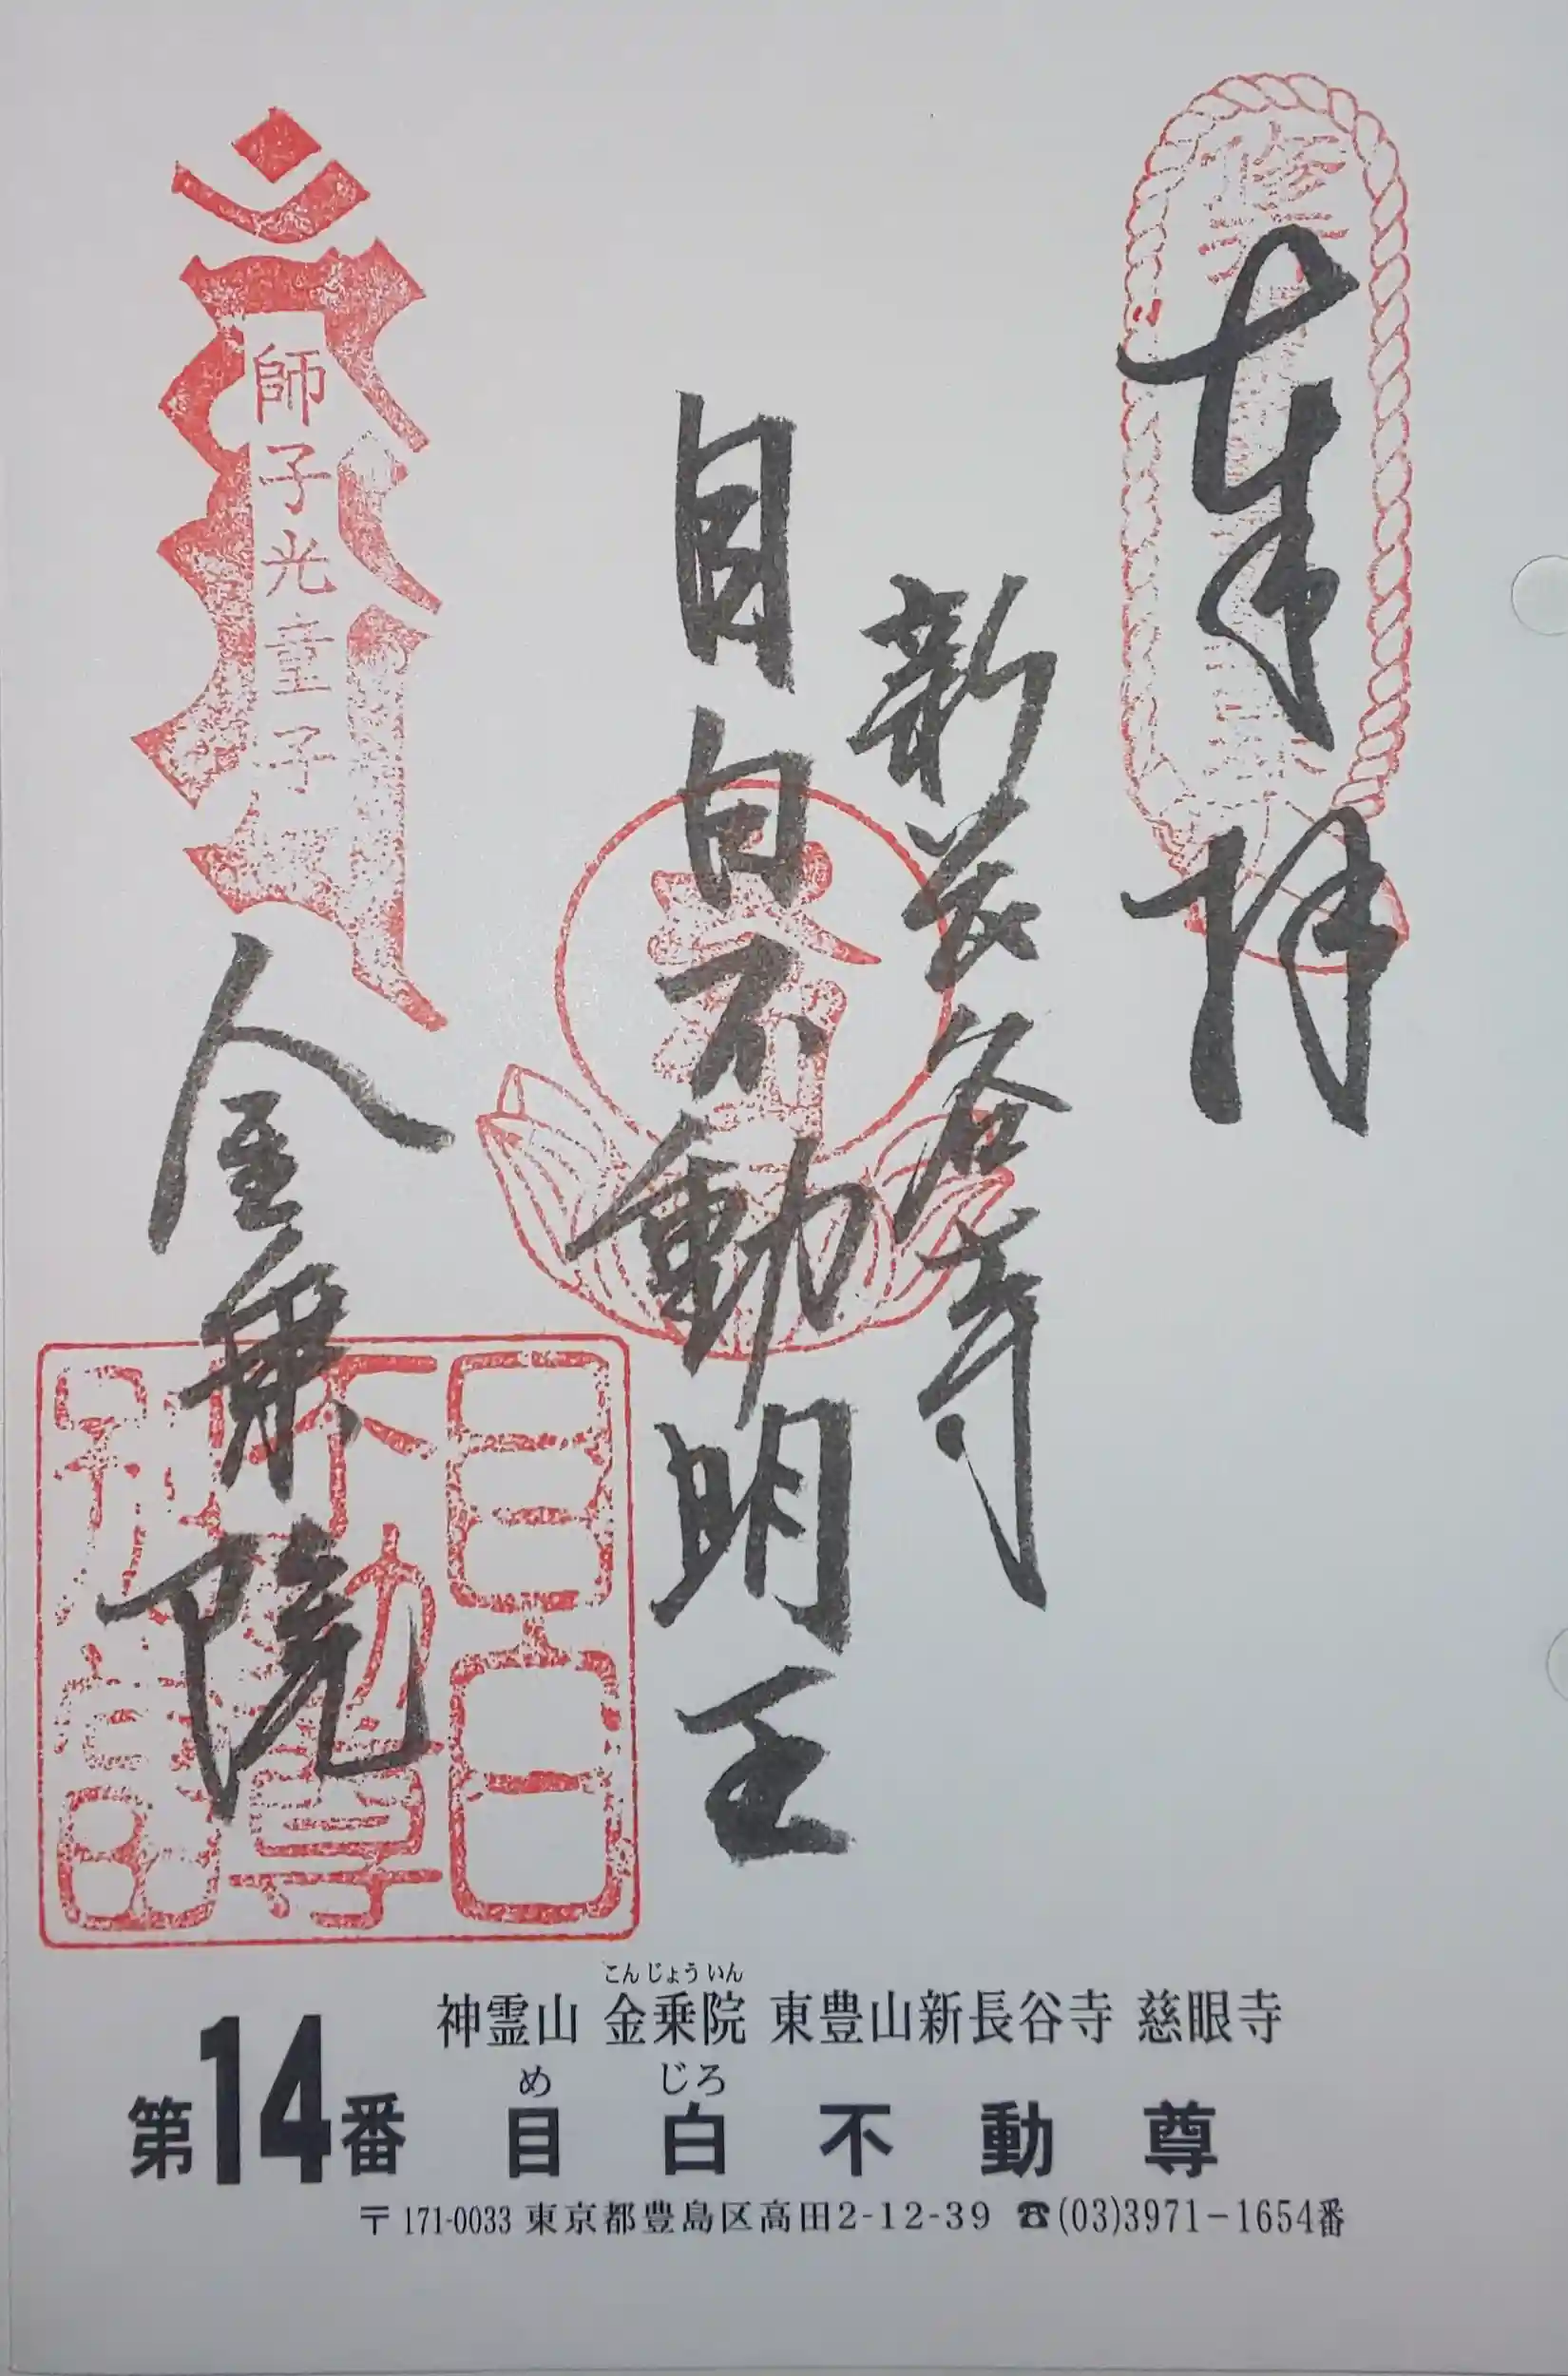 奉拝
新長谷寺
目白不動明王
師子光童子
金乗院
目白
不動尊
別當印
こんじょういん
神霊山 金乗院 東豊山新長谷寺 慈眼寺
め じろ
第14番 目白不動尊
〒171-0033 東京都豊島区高田2-12-39 ☎(03)3971-1654番